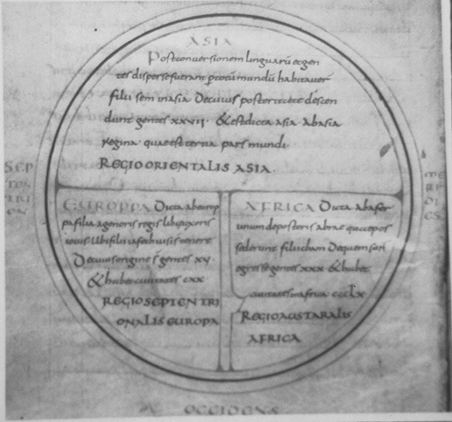 ASIA
Post conversionem linguarū & gen
tes disperse fuerant totū mundū habitaver
filii sem in asia De cuius posteritate descen
dunt gentes xxvii · & est dicta asia ab asia
regina · quae est terna pars mundi
REGIO ORIENTALIS ASIA ·
SEP
TEN
TRI
ON
EUROPPA Dicta ab europ
pa filia agenoris regis libiae uxoris
iovis ubi filii iafeth visi tenere
De cuius origine s gentes xv
& habet civitates cxx
REGIO SEPTENTRI
ONALIS EUROPA
AFRICA Dicta ab afer
unum de posteris abrae quae pos
siderunt filii cham De quem
egresse gentes xxx & habet
civitates in africa ccclx
REGIO AUSTARALIS
AFRICA
ME
RI
DI
ES
OCCIDENS